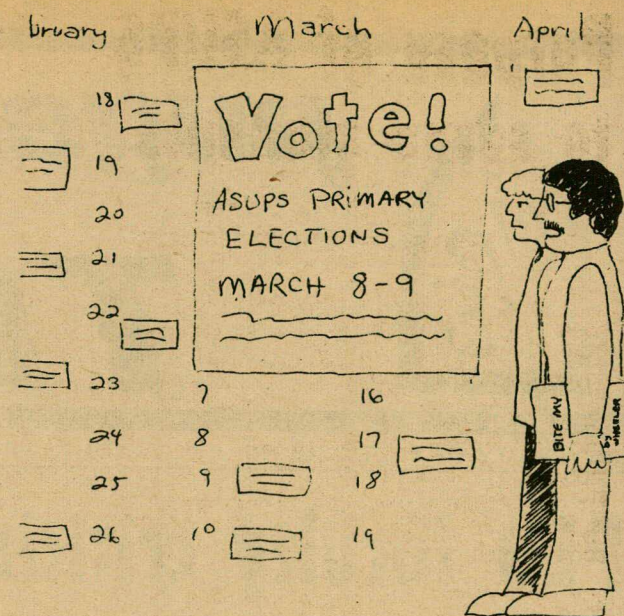 bruary
March
April
18
19
20
21
22
23
24
25
26
Vote!
ASUPS PRIMARY
ELECTIONS
MARCH 8-9
7
8
9
10
16
17
18
19
1
BITE MY
by
WHEELER